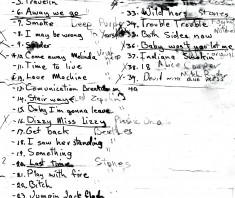 5. Travelin
6. Away we go
7. Smoke Deep Purple
8. I may be wrong
9. Spider
10. Come away Melinda
11. Time to live
12. Love Machine
13. Communication Breakdown
14. Stairways Led Zeppelin
15. Baby I'm gonna leave
16. Dizzy Miss Lizzy Plastic Ono
17. Get back Beatles
18. I saw her standing
19. Something
20. Last time Stones
21. Play with fire
22. Bitch
23. Jumpin Jack flash
33. Wild horses Stones
34. Trouble Trouble
35. Both Sides now
36. Baby won't you let me
37. Indiana
38. 18 Alice Cooper
39. David
40